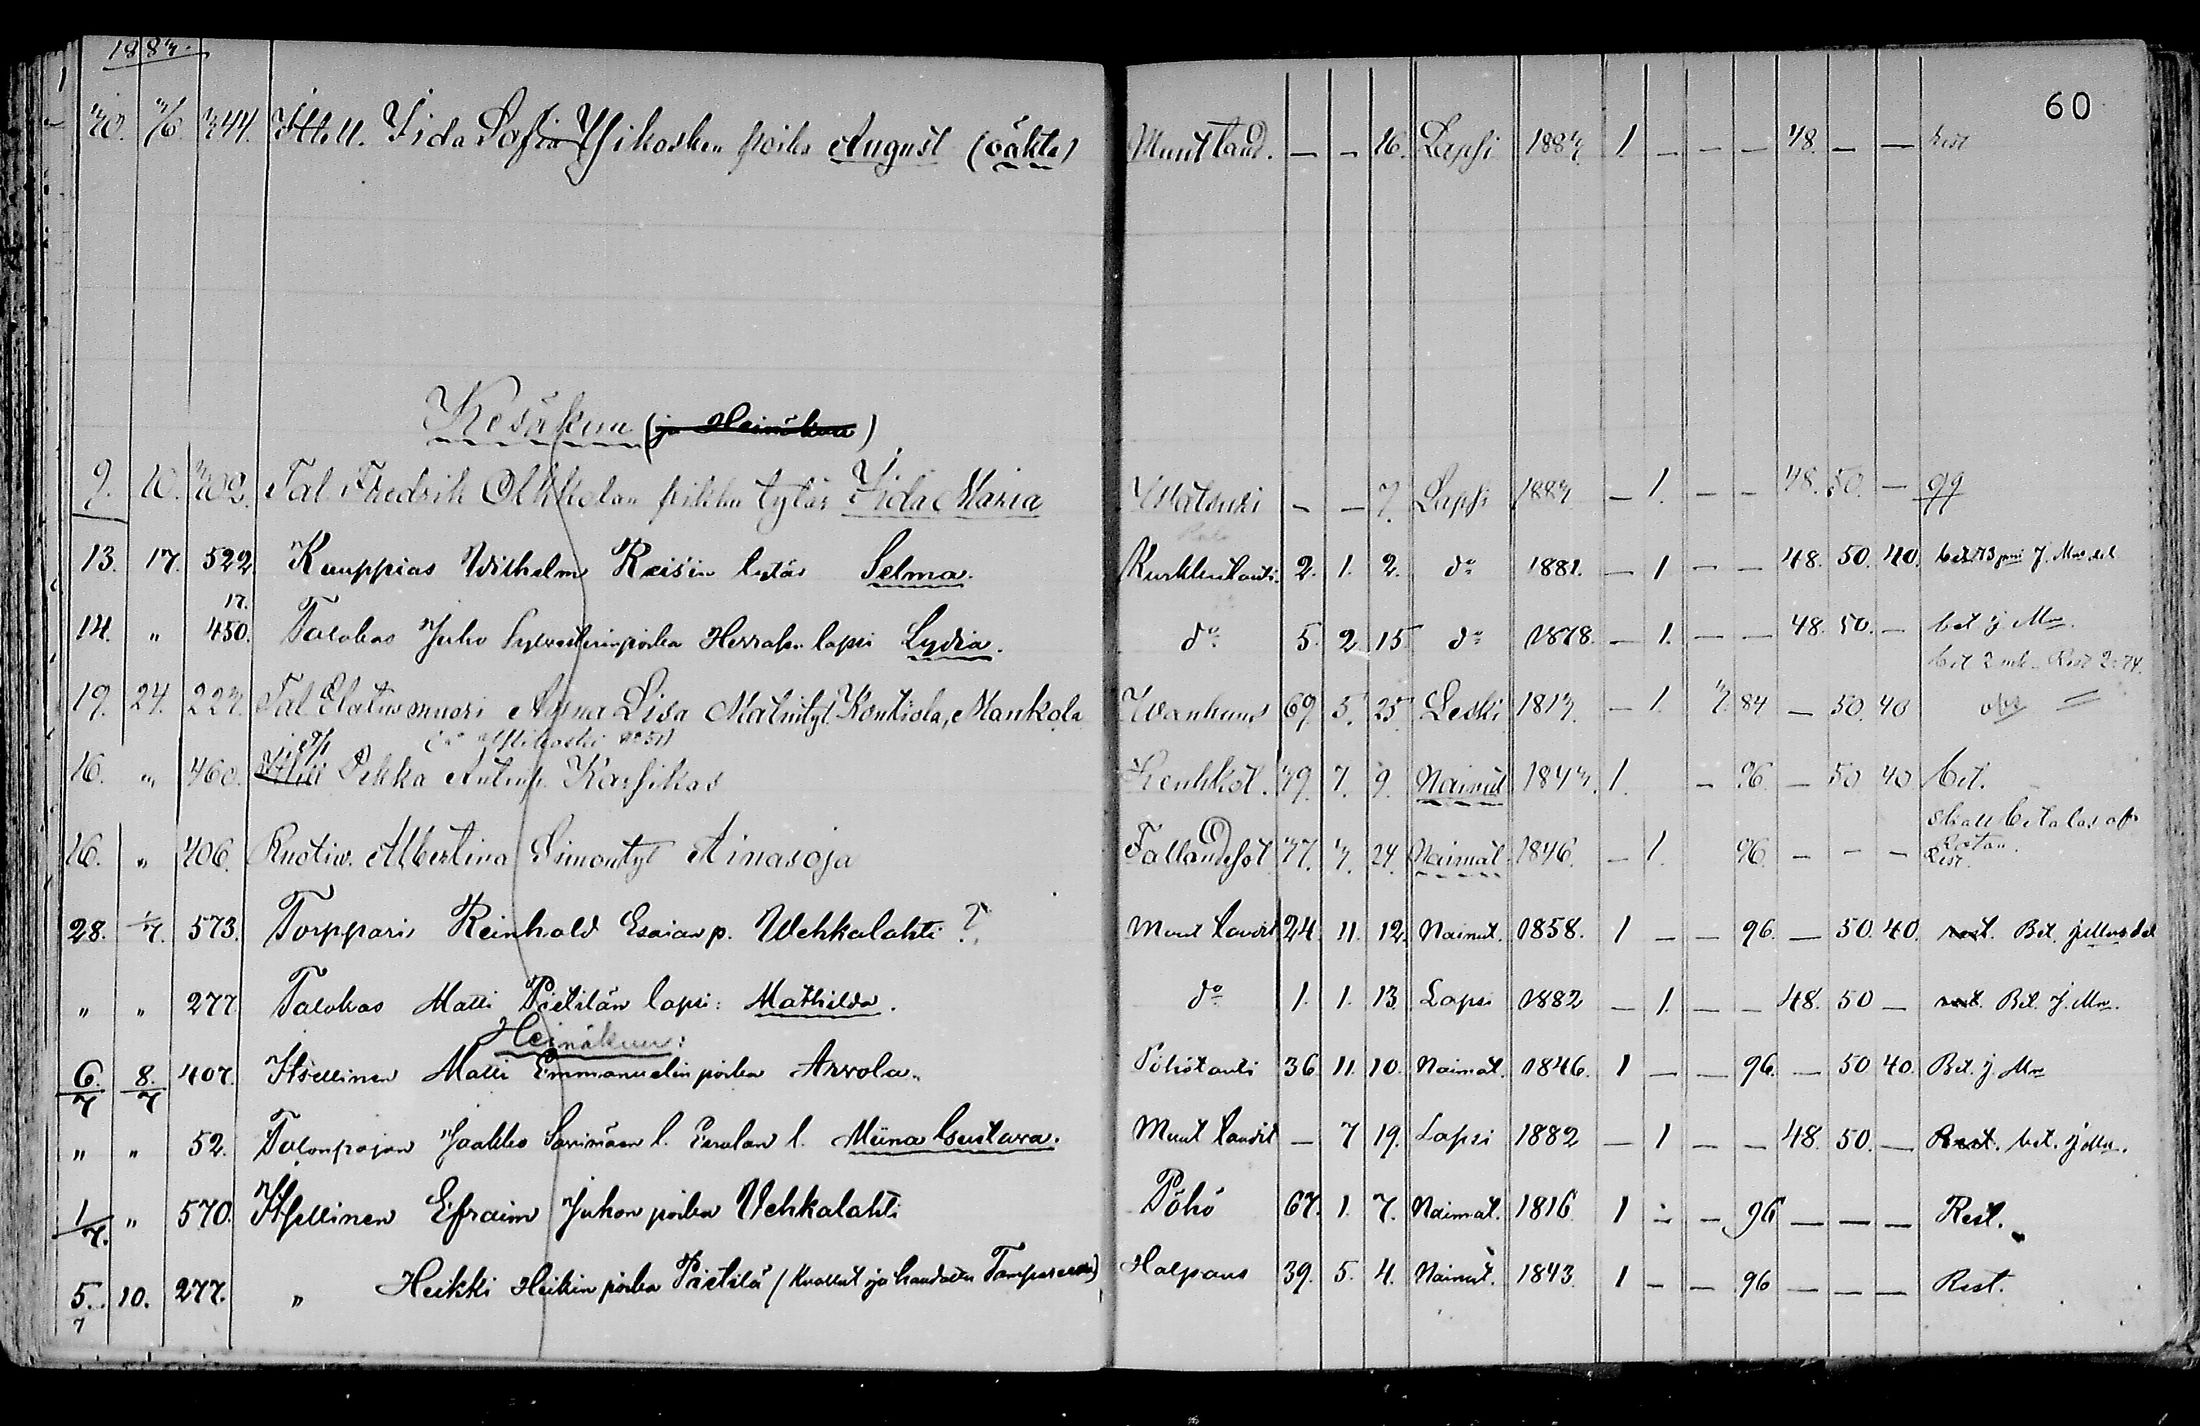 1883.
60
30. 3/6. 344. Itsell. Iida Sofia Ylikosken poika August (oäkta) Muut taud. — — 16. Lapsi 1883 1. — — — 48. — — Rest
Kesäkuu (ja Heinäkuu)
9. 10. 302. Tal. Fredrik Olkkolan pikku tytär Iida Maria — — 7. Lapsi 1883 — 1. — — 48. 50. —
13. 17. 522 Kauppias Wilhelm Reisin tytär Selma. Kurkkutauti. 2. 1. 2. do 1881. — 1 — — 48. 50. 40.
17.
14. " 450. Talokas Juho Sylvesterinpoika Herralan lapsi Lydia. do 5. 2 15 do 1878. — 1. — — 48. 50. — bet j. Mn.
bet 2 mk. Rest 2:74.
19. 24. 223. Tal. Elatusmuori Anna Liisa Matintyt. Kontiola, Mankola Wanhuus 69 5. 25 Leski 1813. — 1. 3. 84 — 50. 40
16. " 460. Pekka Antinp. Karsikas Keuhkot. 39. 7. 9. Nainut 1843. 1. — 96. — 50 40 bet.
skall betalas af
16. " 406. Ruotiv. Albertina Simontyt Ainasoja 37. 3. 24. Naimat. 1846. — 1. 96. — — —
Rest.
28. 1/7. 573. Torppari Reinhold Esaianp. Wehkalahti? Muut taudit 24. 11. 12. Nainut. 1858. 1 — — 96. — 50. 40. rest. Bet.
" " 277 Talokas Matti Pietilän lapsi: Mathilda. do 1. 1. 13 Lapsi 1882 — 1. — — 48. 50 — rest. Bet. j. Mn.
Heinäkuu:
6./7 8./7 407. Itsellinen Matti Emmanuelin poika Arvola. Pöhötauti 36 11. 10. Naimat. 1846. 1 — — 96. — 50 40. Bet. j. Mn
" " 52. Talonpojan Jaakko Savimäen l. Perälän l. Miina Gustava. Muut taudit — 7 19. Lapsi 1882 — 1 — — 48. 50. — Rest. bet.
1/7. " 570. Itsellinen Efraim Juhon poika Vehkalahti Pöhö 67. 1. 7. Naimat. 1816 1 — — 96 — — — Rest.
5./7 10. 277. " Heikki Heikin poika Pietilä (Kuollut ja haudattu Tampereella) Halpaus 39. 5. 4. Nainut. 1843. 1 — — 96 — — — Rest.